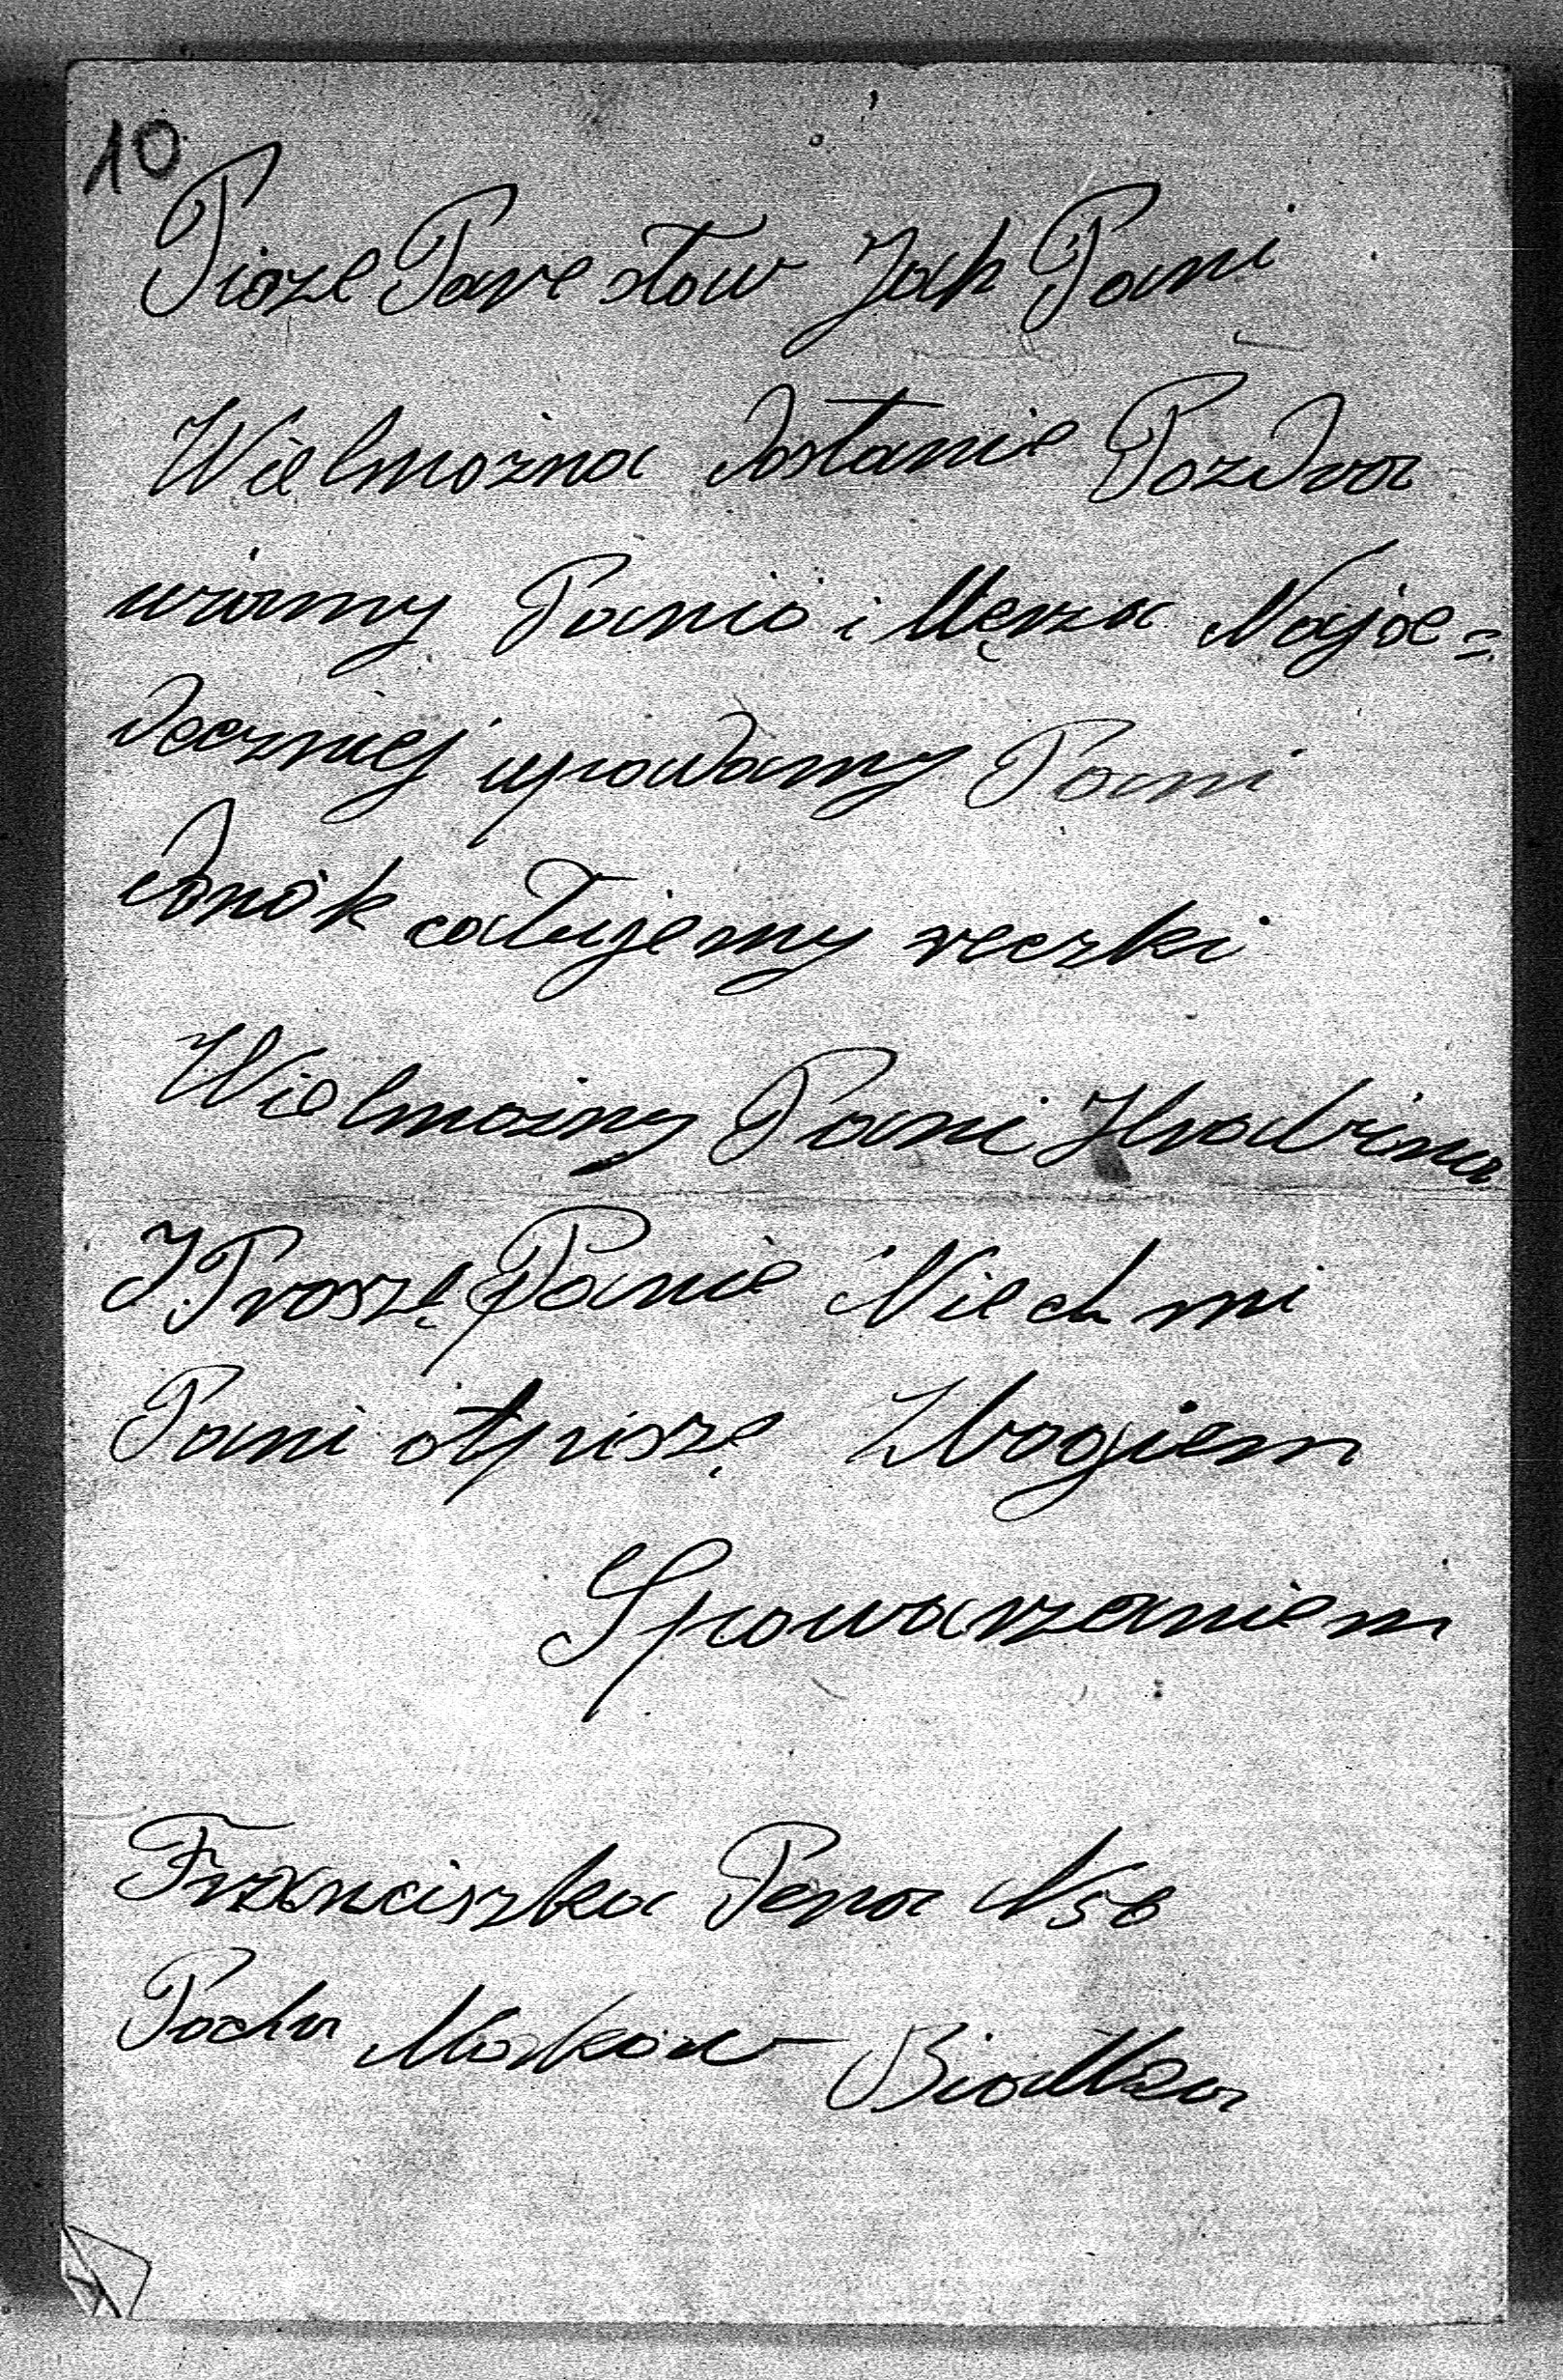 10
Pisze Pare słow Jak Pani
Wielmożna dostanie Pozdra
wiamy Panio i Męrza Najse=
deczniej upadamy Pani
donók całujemy reczki
Wielmożny Pani Hrabina
I Proszę Panie Niech mi
Pani otpiszę Zbogiem
Spowarzaniem
Franciszka Pena N56
Poczta Maków Białka